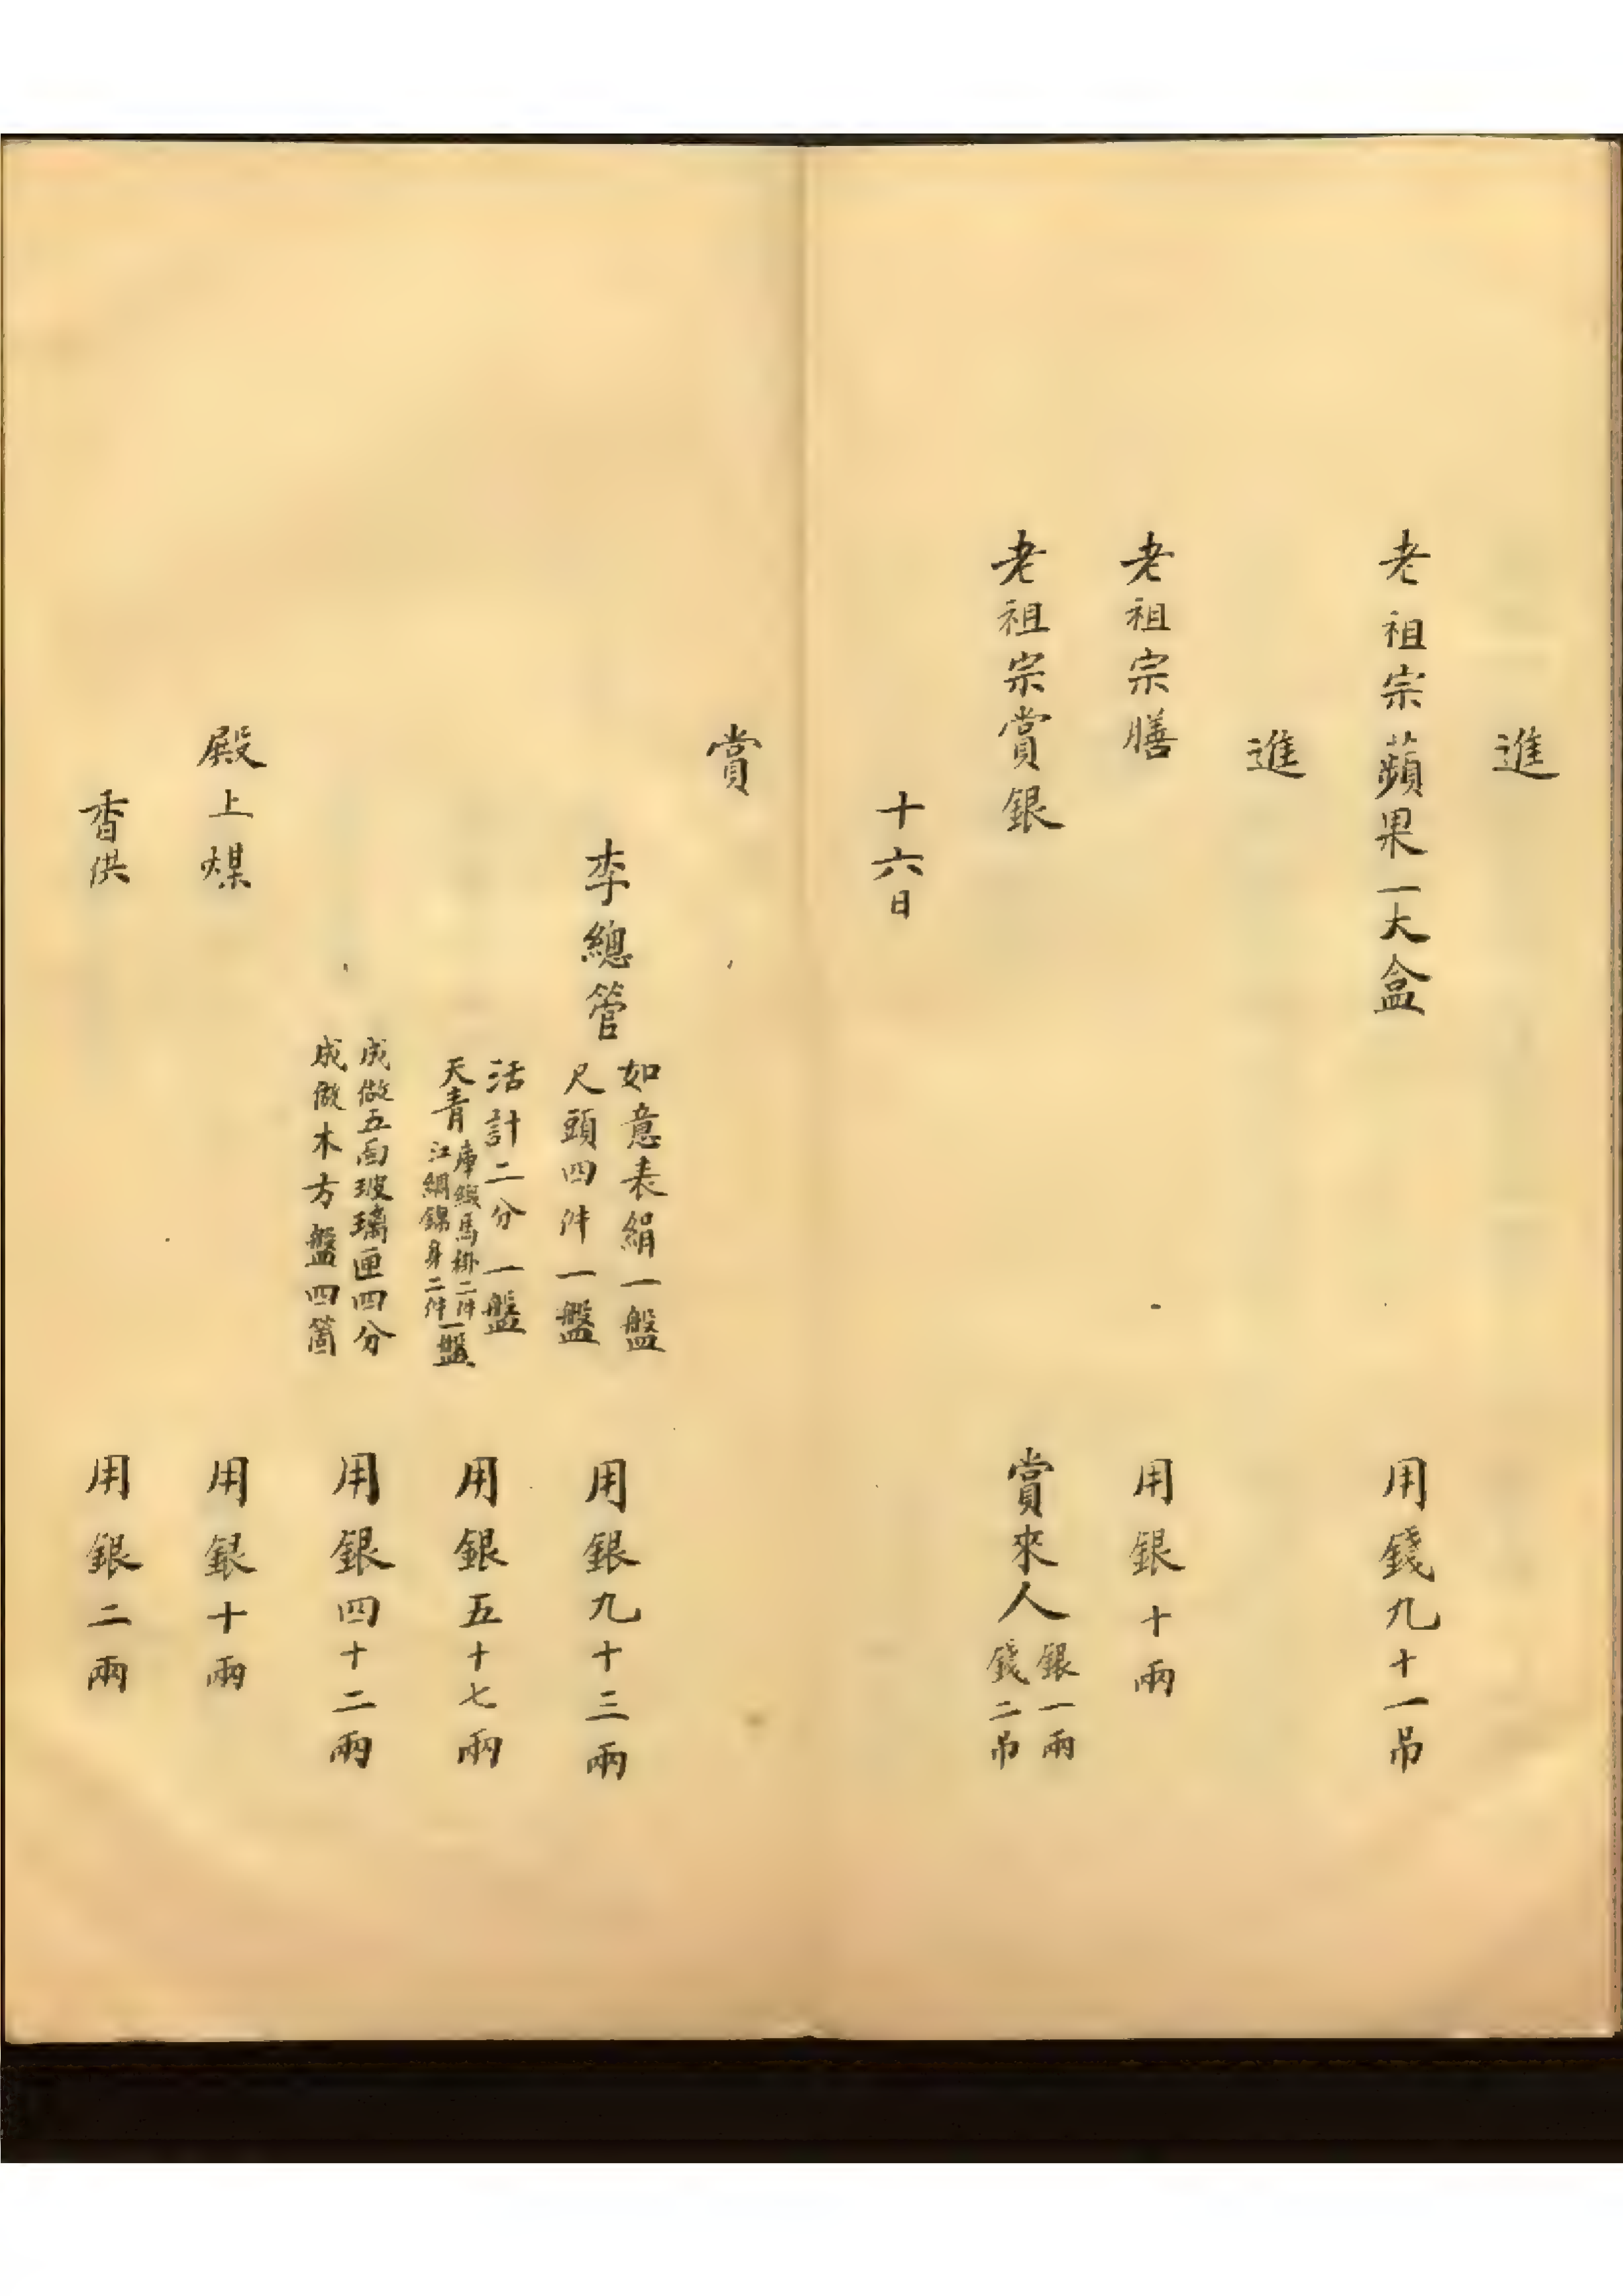 進
老祖宗蘋果一大盒　用錢九十一吊
進
老祖宗膳　用銀十兩
老祖宗賞銀　賞來人銀一兩錢二吊
十六日
賞
李總管如意表絹一盤
尺頭四件一盤　用銀九十三兩
活計二分一盤
天青庫緞馬掛二件江綢錦身二件一盤　用銀五十七兩
成做五面玻璃匣四分
成做木方盤四箇　用銀四十二兩
殿上煤　用銀十兩
香供　用銀二兩